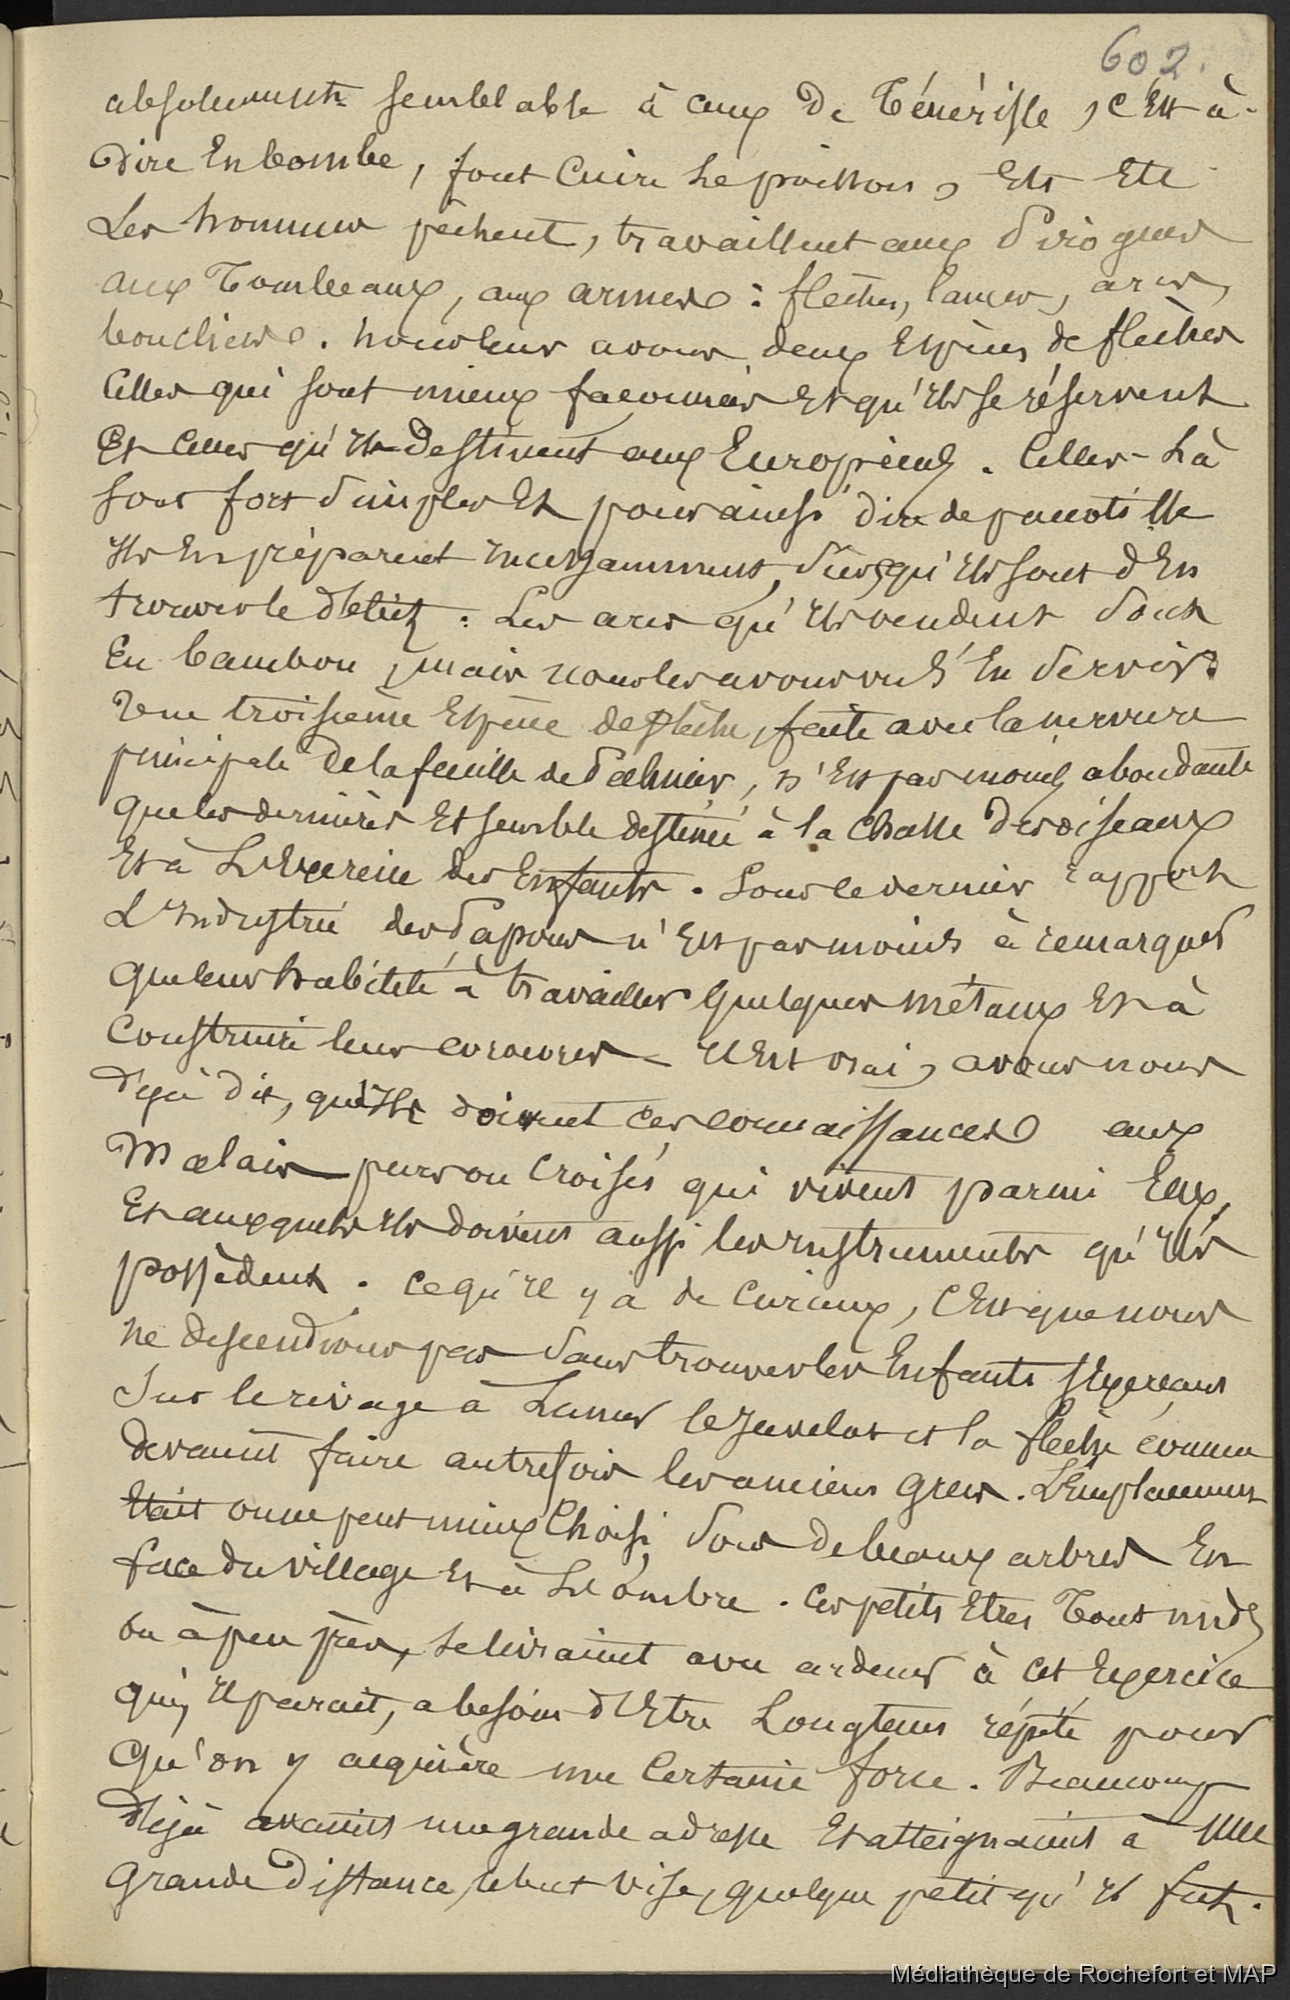 602.
absolument semblable à ceux de Ténériffe, c'est-à-
dire en bombe, font cuire le poisson, etc etc
Les hommes pêchent, travaillent aux Pirogues
aux Tombeaux, aux armes : flèches, lances, arcs,
boucliers. nous leur avons deux espèces de flèches
celles qui sont mieux façonnées et qu'ils se réservent
et celles qu'ils destinent aux Européens. Celles-là
sont fort simples et pour ainsi dire de pacotille
ils en préparent incessamment, sûrs qu'ils sont d'en
trouver le débit. Les arcs qu'ils vendent sont
en bambou, mais nous les avons vus s'en servir.
Une troisième espèce de flèche, faite avec la nervure
principale de la feuille de Palmier, n'est pas moins abondante
que les dernières et semble destinée à la chasse des oiseaux
et à L'Exercice des Enfants. Sous le dernier rapport
L'industrie des Papous n'est pas moins à remarquer
que leur habileté à travailler quelques métaux et à
construire leurs
il est vrai, avons nous
déjà dit, qu'ils doivent ces connaissances aux
Malais purs ou croisés qui vivent parmi Eux,
Et auxquels ils doivent aussi les instruments qu'ils
possèdent. ce qu'il y a de curieux, c'est que nous
ne descendions pas sans trouver les Enfants s'Exerçant
sur le rivage à Lancer le Javelot et la flèche comme
devaient faire autrefois les anciens Grecs. L'Emplacement
Etait on ne peut mieux choisi, sous de beaux arbres En
face du village et à L'ombre. Ces petits Etres Tout nuds
ou à peu près, se livraient avec ardeur à cet Exercice
qui, il parait, a besoin d'Etre Longtems répété pour
qu'on y acquière une certaine force. Beaucoup
déjà avaient une grande adresse et atteignaient à une
grande distance, le but visé, quelque petit qu'il fut.
Médiathèque de Rochefort et MAP